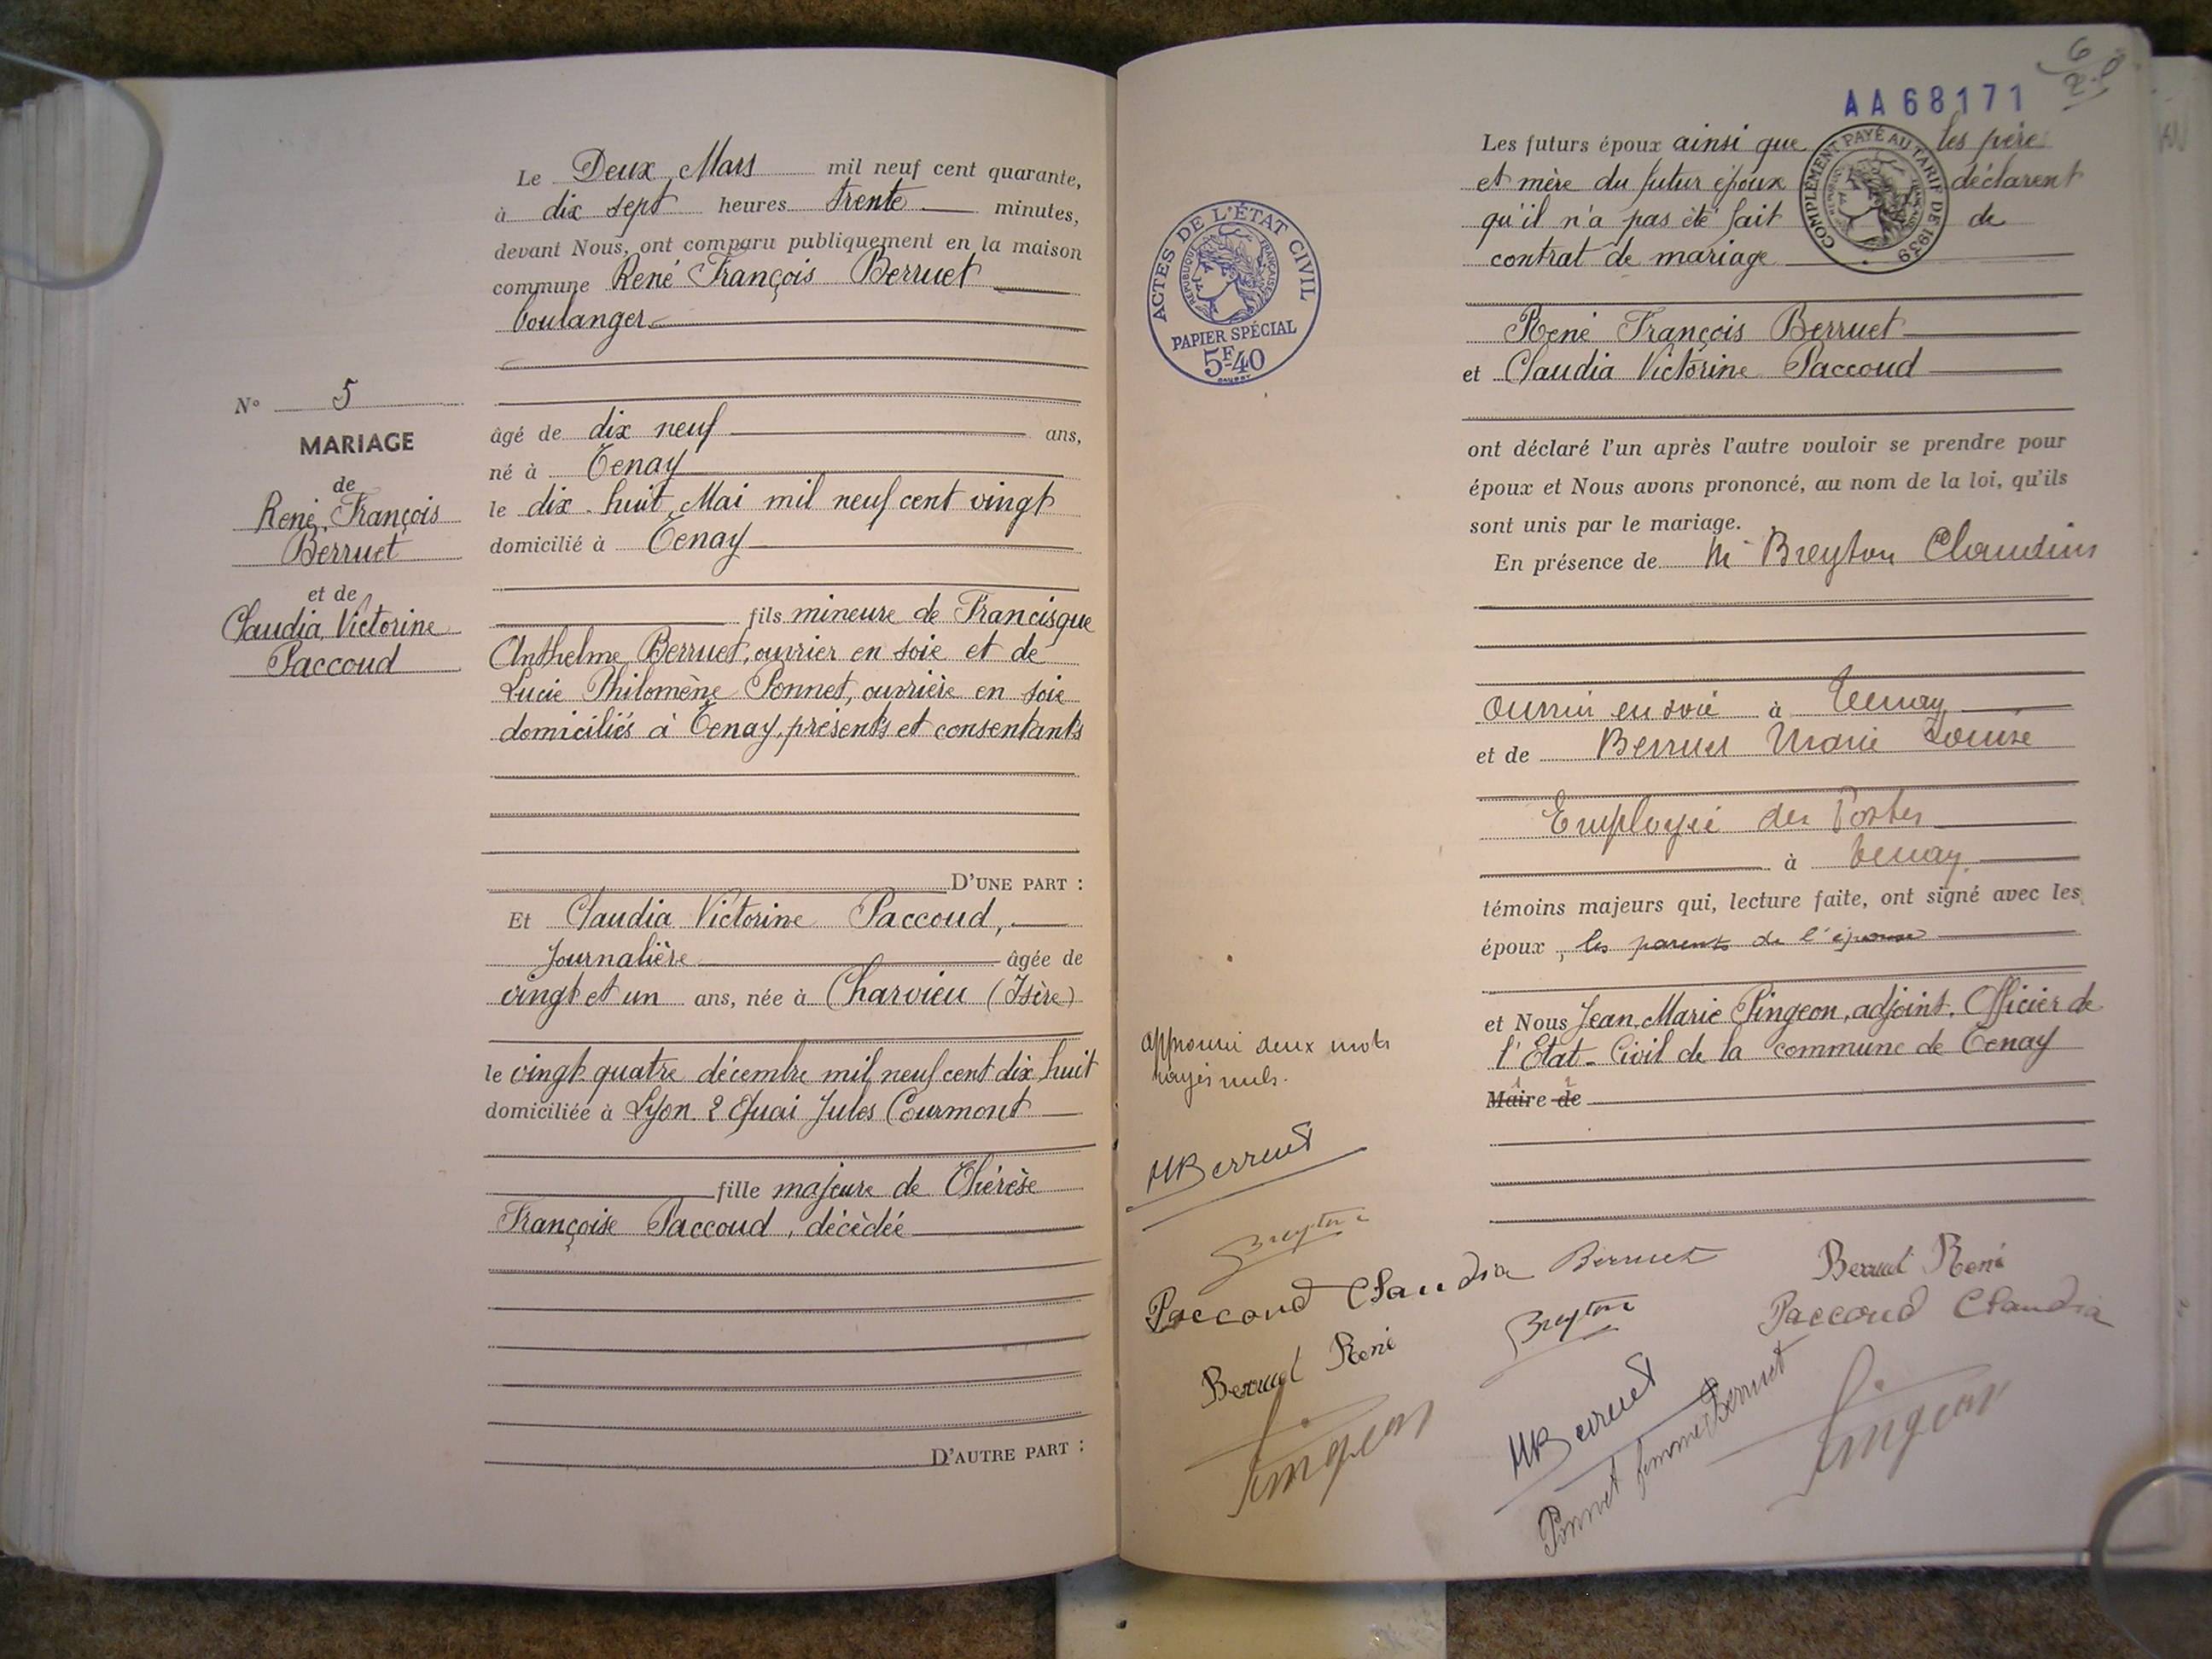 Le Deux Mars mil neuf cent quarante,
à dix sept heures trente minutes,
devant Nous, ont comparu publiquement en la maison
commune René François Berruet
boulanger
N° 5
MARIAGE
de
René, François
Berruet
et de
Claudia, Victorine
Paccoud
âgé de dix neuf ans,
né à Tenay
le dix-huit Mai mil neuf cent vingt
domicilié à Tenay
fils mineure de Francisque
Anthelme Berruet, ouvrier en soie et de
Lucie Philomène Ponnet, ouvrière en soie
domiciliés à Tenay, présents et consentants
D'UNE PART :
Et Claudia Victorine Paccoud,
Journalière âgée de
vingt et un ans, née à Charvieu (Isère)
le vingt-quatre décembre mil neuf cent dix huit
domiciliée à Lyon 2 Quai Jules Courmont
fille majeure de Thérèse
Françoise Paccoud, décédée
D'AUTRE PART :
AA68171
COMPLÉMENT PAYÉ AU TARIF DE 1939
ACTES DE L'ÉTAT CIVIL
RÉPUBLIQUE FRANÇAISE
PAPIER SPÉCIAL
5F40
Les futurs époux ainsi que les père
et mère du futur époux déclarent
qu'il n'a pas été fait de
contrat de mariage
René François Berruet
et Claudia Victorine Paccoud
ont déclaré l'un après l'autre vouloir se prendre pour
époux et Nous avons prononcé, au nom de la loi, qu'ils
sont unis par le mariage.
En présence de M Breyton Claudius
ouvrier en soie à Tenay
et de Berruet Marie Louise
Employée des Postes
à Tenay
témoins majeurs qui, lecture faite, ont signé avec les
époux, les parents de l'épouse
et Nous Jean, Marie Pingeon, adjoint, Officier de
l'Etat-Civil de la commune de Tenay
Maire de
approuvé deux mots
rayés nuls.
MBerruet
Breyton
Paccoud Claudia Berruet
Berruet René
Pingeon
Breyton
MBerruet
Ponnet femme Berruet
Berruet René
Paccoud Claudia
Pingeon